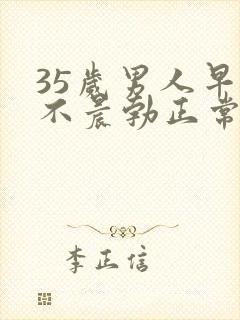 35歲男人早
不晨勃正常
李正信